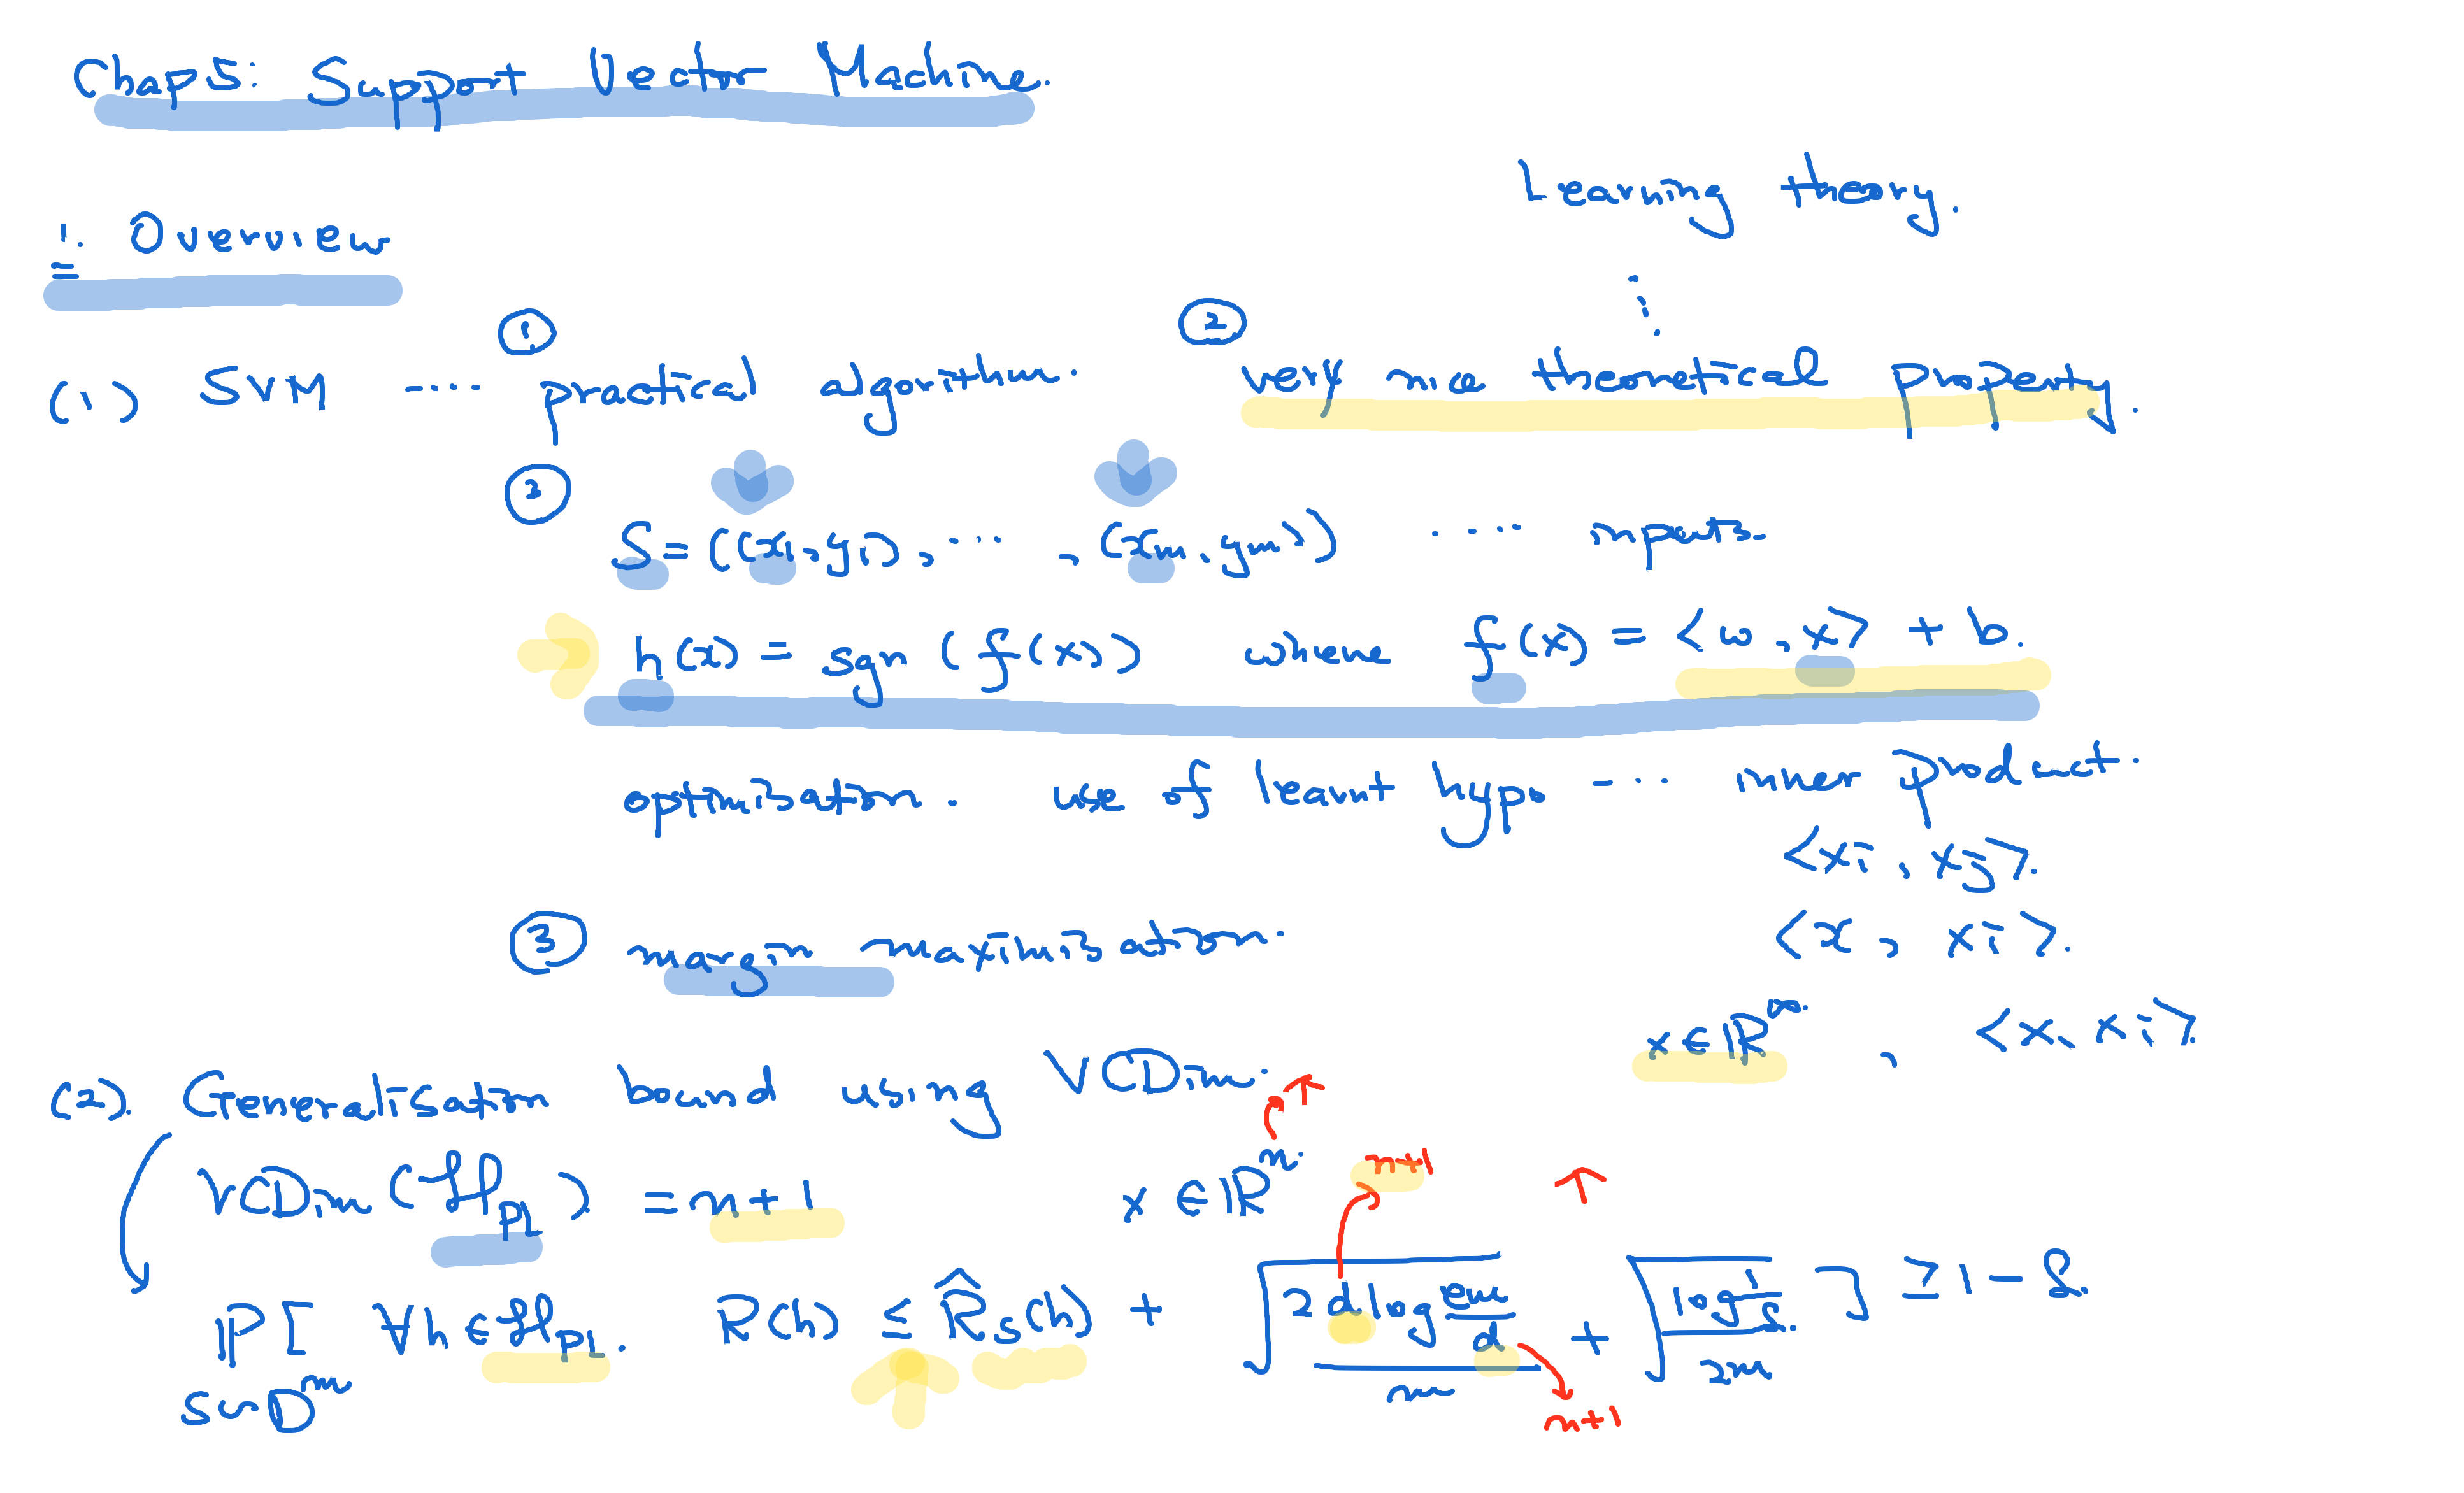 Chap 5: Support Vector Machine.
Learning theory.
1. Overview
① ②
(1) SVM .... practical algorithm. very nice theoretical property.
③
S = ((x1, y1), ..., (xm, ym)) .... inputs.
h(x) = sgn (f(x)) where f(x) = <w, x> + b.
optimization. use of learnt hyp ... inner product.
<xi, xj>.
③ margin maximisation <x, xi>.
x ∈ R^∞. , <x, xi>
(2). Generalisation bound using VCDim.
VCDim(H_pl) = n+1 x ∈ R^n. n+1
P[ ∀h ∈ H_pl. R(h) ≤ R̂_S(h) + √(2d log (em/d) / m) + √(log 1/δ / 2m) ] ≥ 1 - δ.
S~D^m n+1